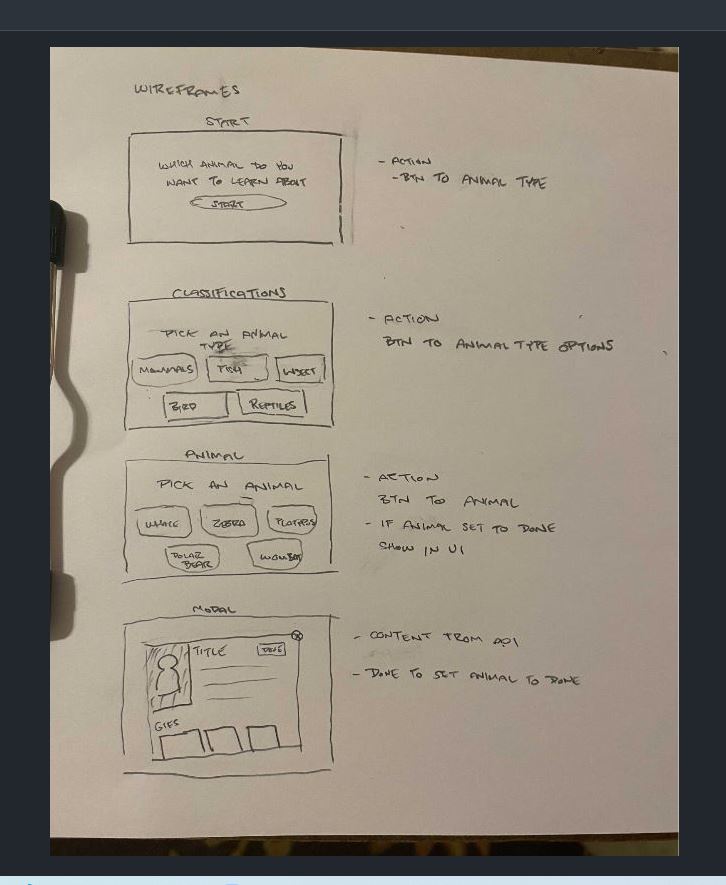 WIREFRAMES
START
WHICH ANIMAL DO YOU
WANT TO LEARN ABOUT
START
- ACTION
- BTN TO ANIMAL TYPE
CLASSIFICATIONS
PICK AN ANIMAL
TYPE
MAMMALS FISH INSECT
BIRD REPTILES
- ACTION
BTN TO ANIMAL TYPE OPTIONS
ANIMAL
PICK AN ANIMAL
WHALE ZEBRA PLATYPUS
POLAR
BEAR
WOMBAT
- ACTION
BTN TO ANIMAL
- IF ANIMAL SET TO DONE
SHOW IN UI
MODAL
X
TITLE DONE
GIFS
- CONTENT FROM API
- DONE TO SET ANIMAL TO DONE